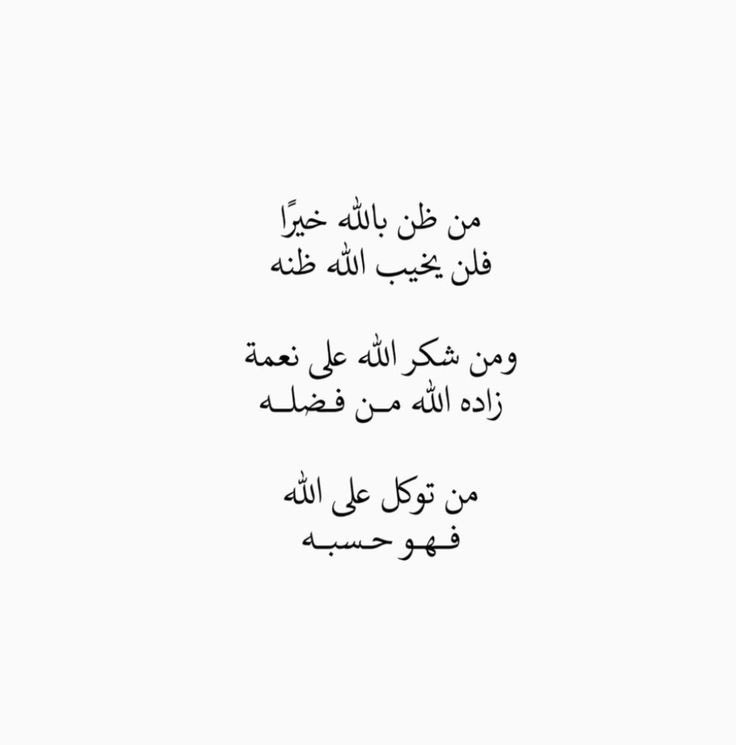 من ظن بالله خيرًا
فلن يخيب الله ظنه
ومن شكر الله على نعمة
زاده الله مــن فــضلــه
من توكل على الله
فــهــو حــسبــه